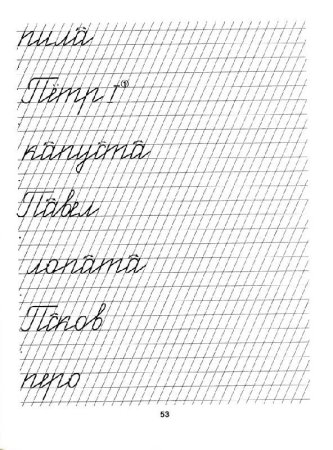 пила
Пётр I①
капуста
Павел
лопата
Псков
перо
53